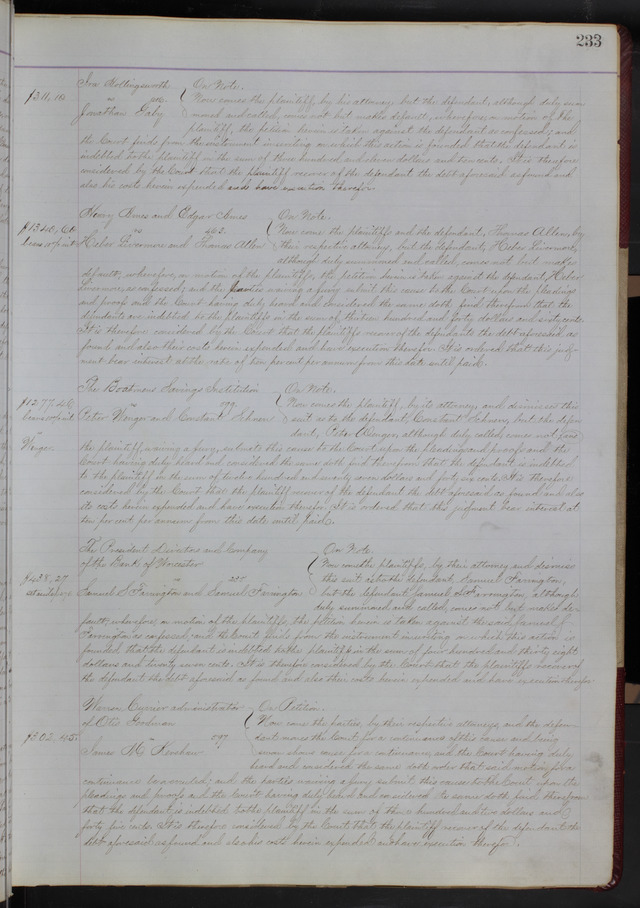 233
Ira Hollingsworth On Note.
$311,10 vs Now comes the plaintiff, by his attorney but the defendant, although duly sum
Jonathan Gaby moned and called, comes not but makes default; wherefore, on motion of the
plaintiff, the petition herein is taken against the defendant as confessed; and
the Court finds from the instrument in writing on which this action is founded that the defendant is
indebted to the plaintiff in the sum of three hundred and eleven dollars and ten cents. It is therefore
considered by the Court that the plaintiff recover of the defendant the debt aforesaid as found and
also his costs herein expended and have execution therefor.
Henry Ames and Edgar Ames On Note.
$1340, 61 vs Now come the plaintiffs and the defendant, Thomas Allen, by
Heber Livermore and Thomas Allen their respective attorneys, but the defendant, Heber Livermore,
although duly summoned and called, comes not but makes
default; wherefore, on motion of the plaintiffs, the petition herein is taken against the defendant, Heber
Livermore, as confessed; and the parties waiving a jury submit this cause to the Court upon the pleadings
and proofs and the Court having duly heard and considered the same doth find therefrom that the
defendants are indebted to the plaintiffs in the sum of thirteen hundred and forty dollars and sixty cents.
It is therefore considered by the Court that the plaintiffs recover of the defendants the debt aforesaid as
found and also their costs herein expended and have execution therefor. It is ordered that this judg-
ment bear interest at the rate of ten per cent per annum from this date until paid.
The Boatmens Savings Institution On Note.
$1277.46 vs 799 Now comes the plaintiff, by its attorney, and dismisses this
Peter Wenger and Constant Schuer suit as to the defendant, Constant Schuer, but the defen
dant, Peter Wenger, although duly called, comes not, and
Wenger. the plaintiff, waiving a jury, submits this cause to the Court upon the pleadings and proofs and the
Court having duly heard and considered the same doth find therefrom that the defendant is indebted
to the plaintiff in the sum of twelve hundred and seventy seven dollars and forty six cents. It is therefore
considered by the Court that the plaintiff recover of the defendant the debt aforesaid as found and also
its costs herein expended and have execution therefor. It is ordered that this judgment bear interest at
ten per cent per annum from this date until paid.
The President Directors and Company On Note.
of the Bank of Worcester Now comes the plaintiffs, by their attorney and dismiss
$438,27 vs this suit as to the defendant, Samuel Farrington,
Samuel S Farrington and Samuel Farrington but the defendant Samuel S Farrington, although
duly summoned and called, comes not but makes de-
fault; wherefore, on motion of the plaintiffs, the petition herein is taken against the said Samuel S
Farrington as confessed; and the Court finds from the instrument in writing on which this action is
founded that the defendant is indebted to the plaintiffs in the sum of four hundred and thirty eight
dollars and twenty seven cents. It is therefore considered by the Court that the plaintiffs recover of
the defendant the debt aforesaid as found and also their costs herein expended and have execution therefor
Warren Currier administrator On Petition.
of Otis Goodman Now come the parties, by their respective attorneys, and the defen-
$302.45 vs 797 dant moves the Court for a continuance of this cause and
James McKershaw cause for a continuance, and the Court having duly
heard and considered the same doth order that said motion for a
continuance be overruled; and the parties waiving a jury submit this cause to the Court upon the
pleadings and proofs and the Court having duly heard and considered the same doth find therefrom
that the defendant is indebted to the plaintiff in the sum of three hundred and two dollars and
forty five cents. It is therefore considered by the Court that the plaintiff recover of the defendant the
debt aforesaid as found and also his costs herein expended and have execution therefor.